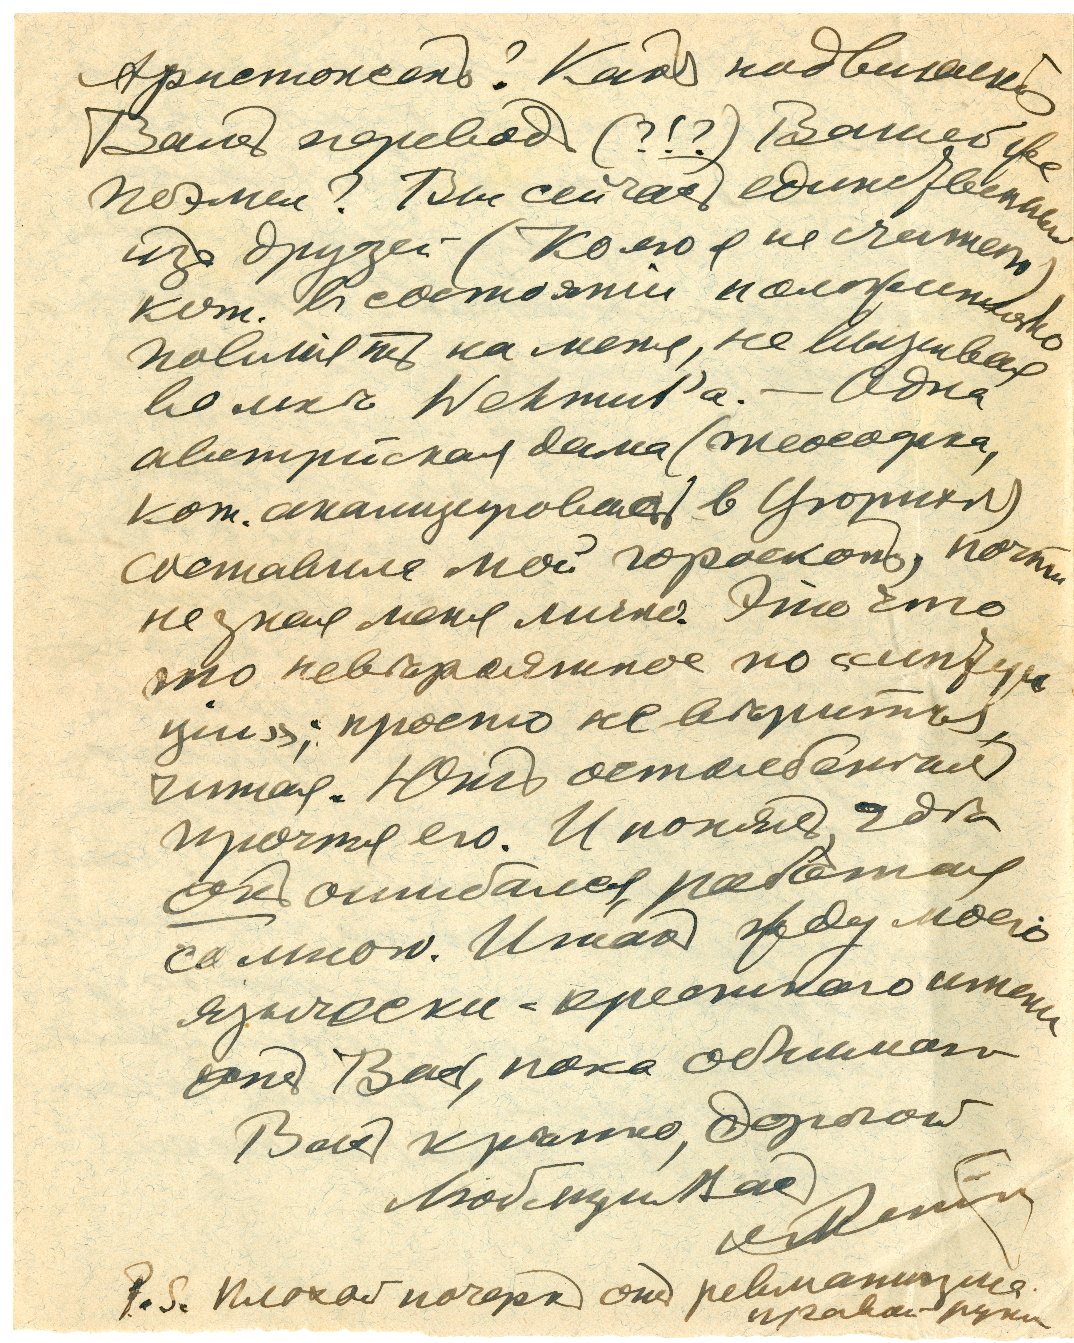 Аристоксенъ? Какъ надвигаетъ
Валя переводъ (?!?) Вашей же
поэмы? Вы сейчасъ единственный
изъ друзей (Колю я не считаю)
кот. в состоянiи положительно
повлiять на меня, не вызывая
во мнѣ Wehmut'а. — Одна
австрiйская дама (теософка,
кот. анализировалась в Цюрихѣ)
составила мой гороскопъ, почти
не зная меня лично. Это что-
то невѣроятное по «интуи
цiи»; просто не вѣрится,
читая. Юнгъ остолбенѣлъ
прочтя его. И понялъ, гдѣ
онъ ошибался, работая
со мною. Итакъ жду моего
язычески-крестнаго имени
отъ Васъ, пока обнимаю
Васъ крѣпко, дорогой
Любящiй Васъ
P.S. Плохой почеркъ отъ ревматизма
правой руки